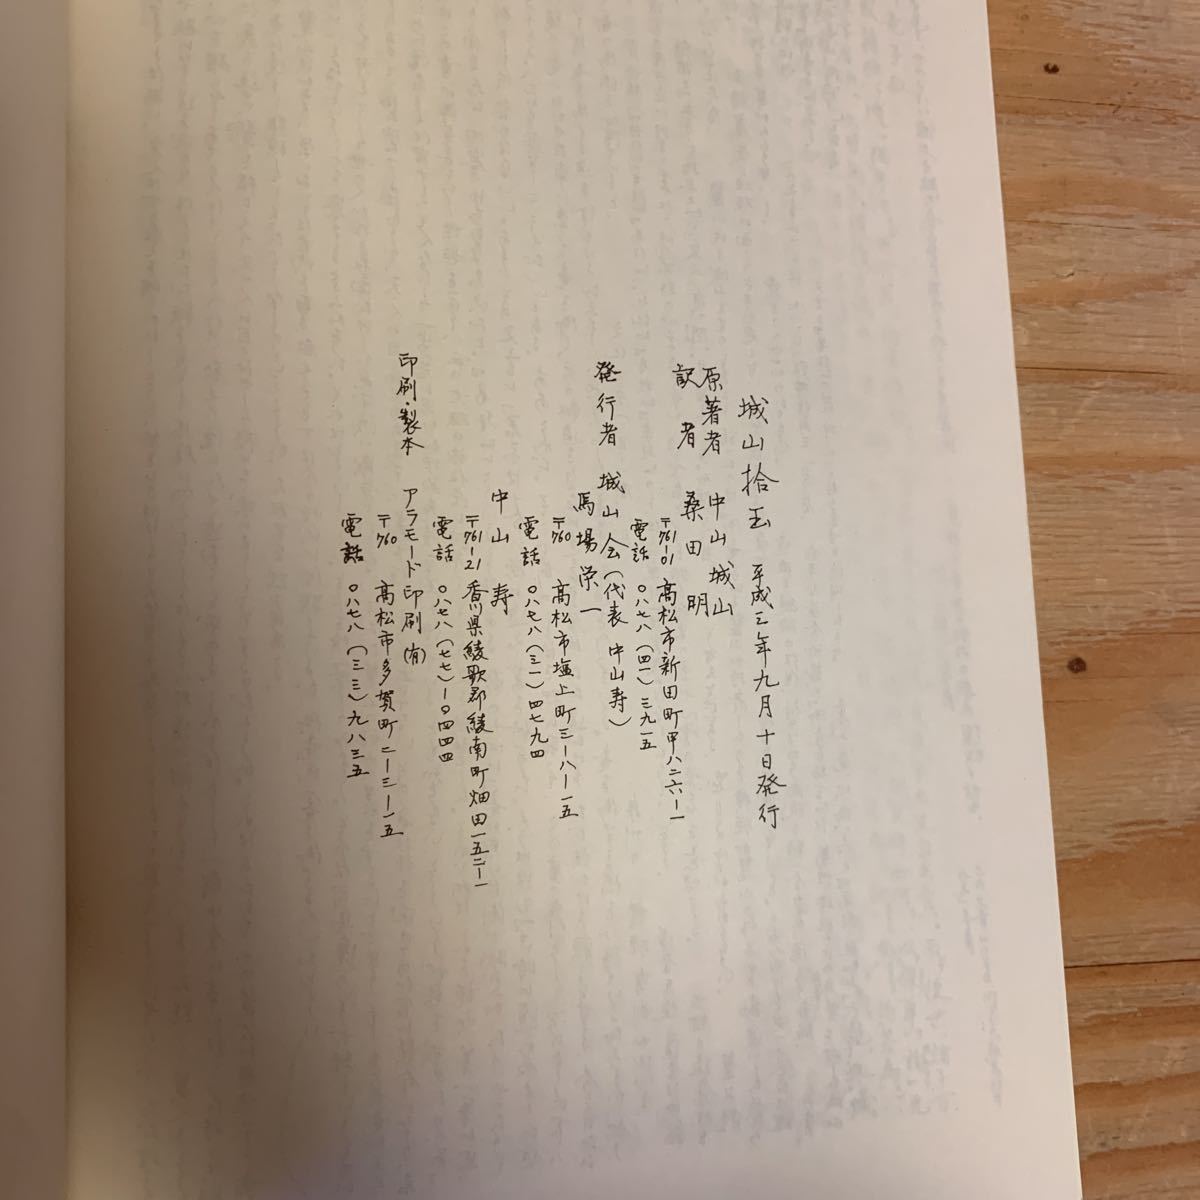 城山拾玉　平成三年九月十日発行
原著者　中山城山
訳者　桑田明
〒761-01　高松市新田町甲八二六ー一
電話　〇八七八（四一）三九一五
発行者　城山会（代表　中山寿）
馬場栄一
〒760　高松市塩上町三ー八ー一五
電話　〇八七八（三一）四七九四
中山　寿
〒761-21　香川県綾歌郡綾南町畑田一五二ー一
電話　〇八七八（七七）ー〇四四四
印刷・製本　アラモード印刷（有）
〒760　高松市多賀町二ー三ー一五
電話　〇八七八（三三）九八三五